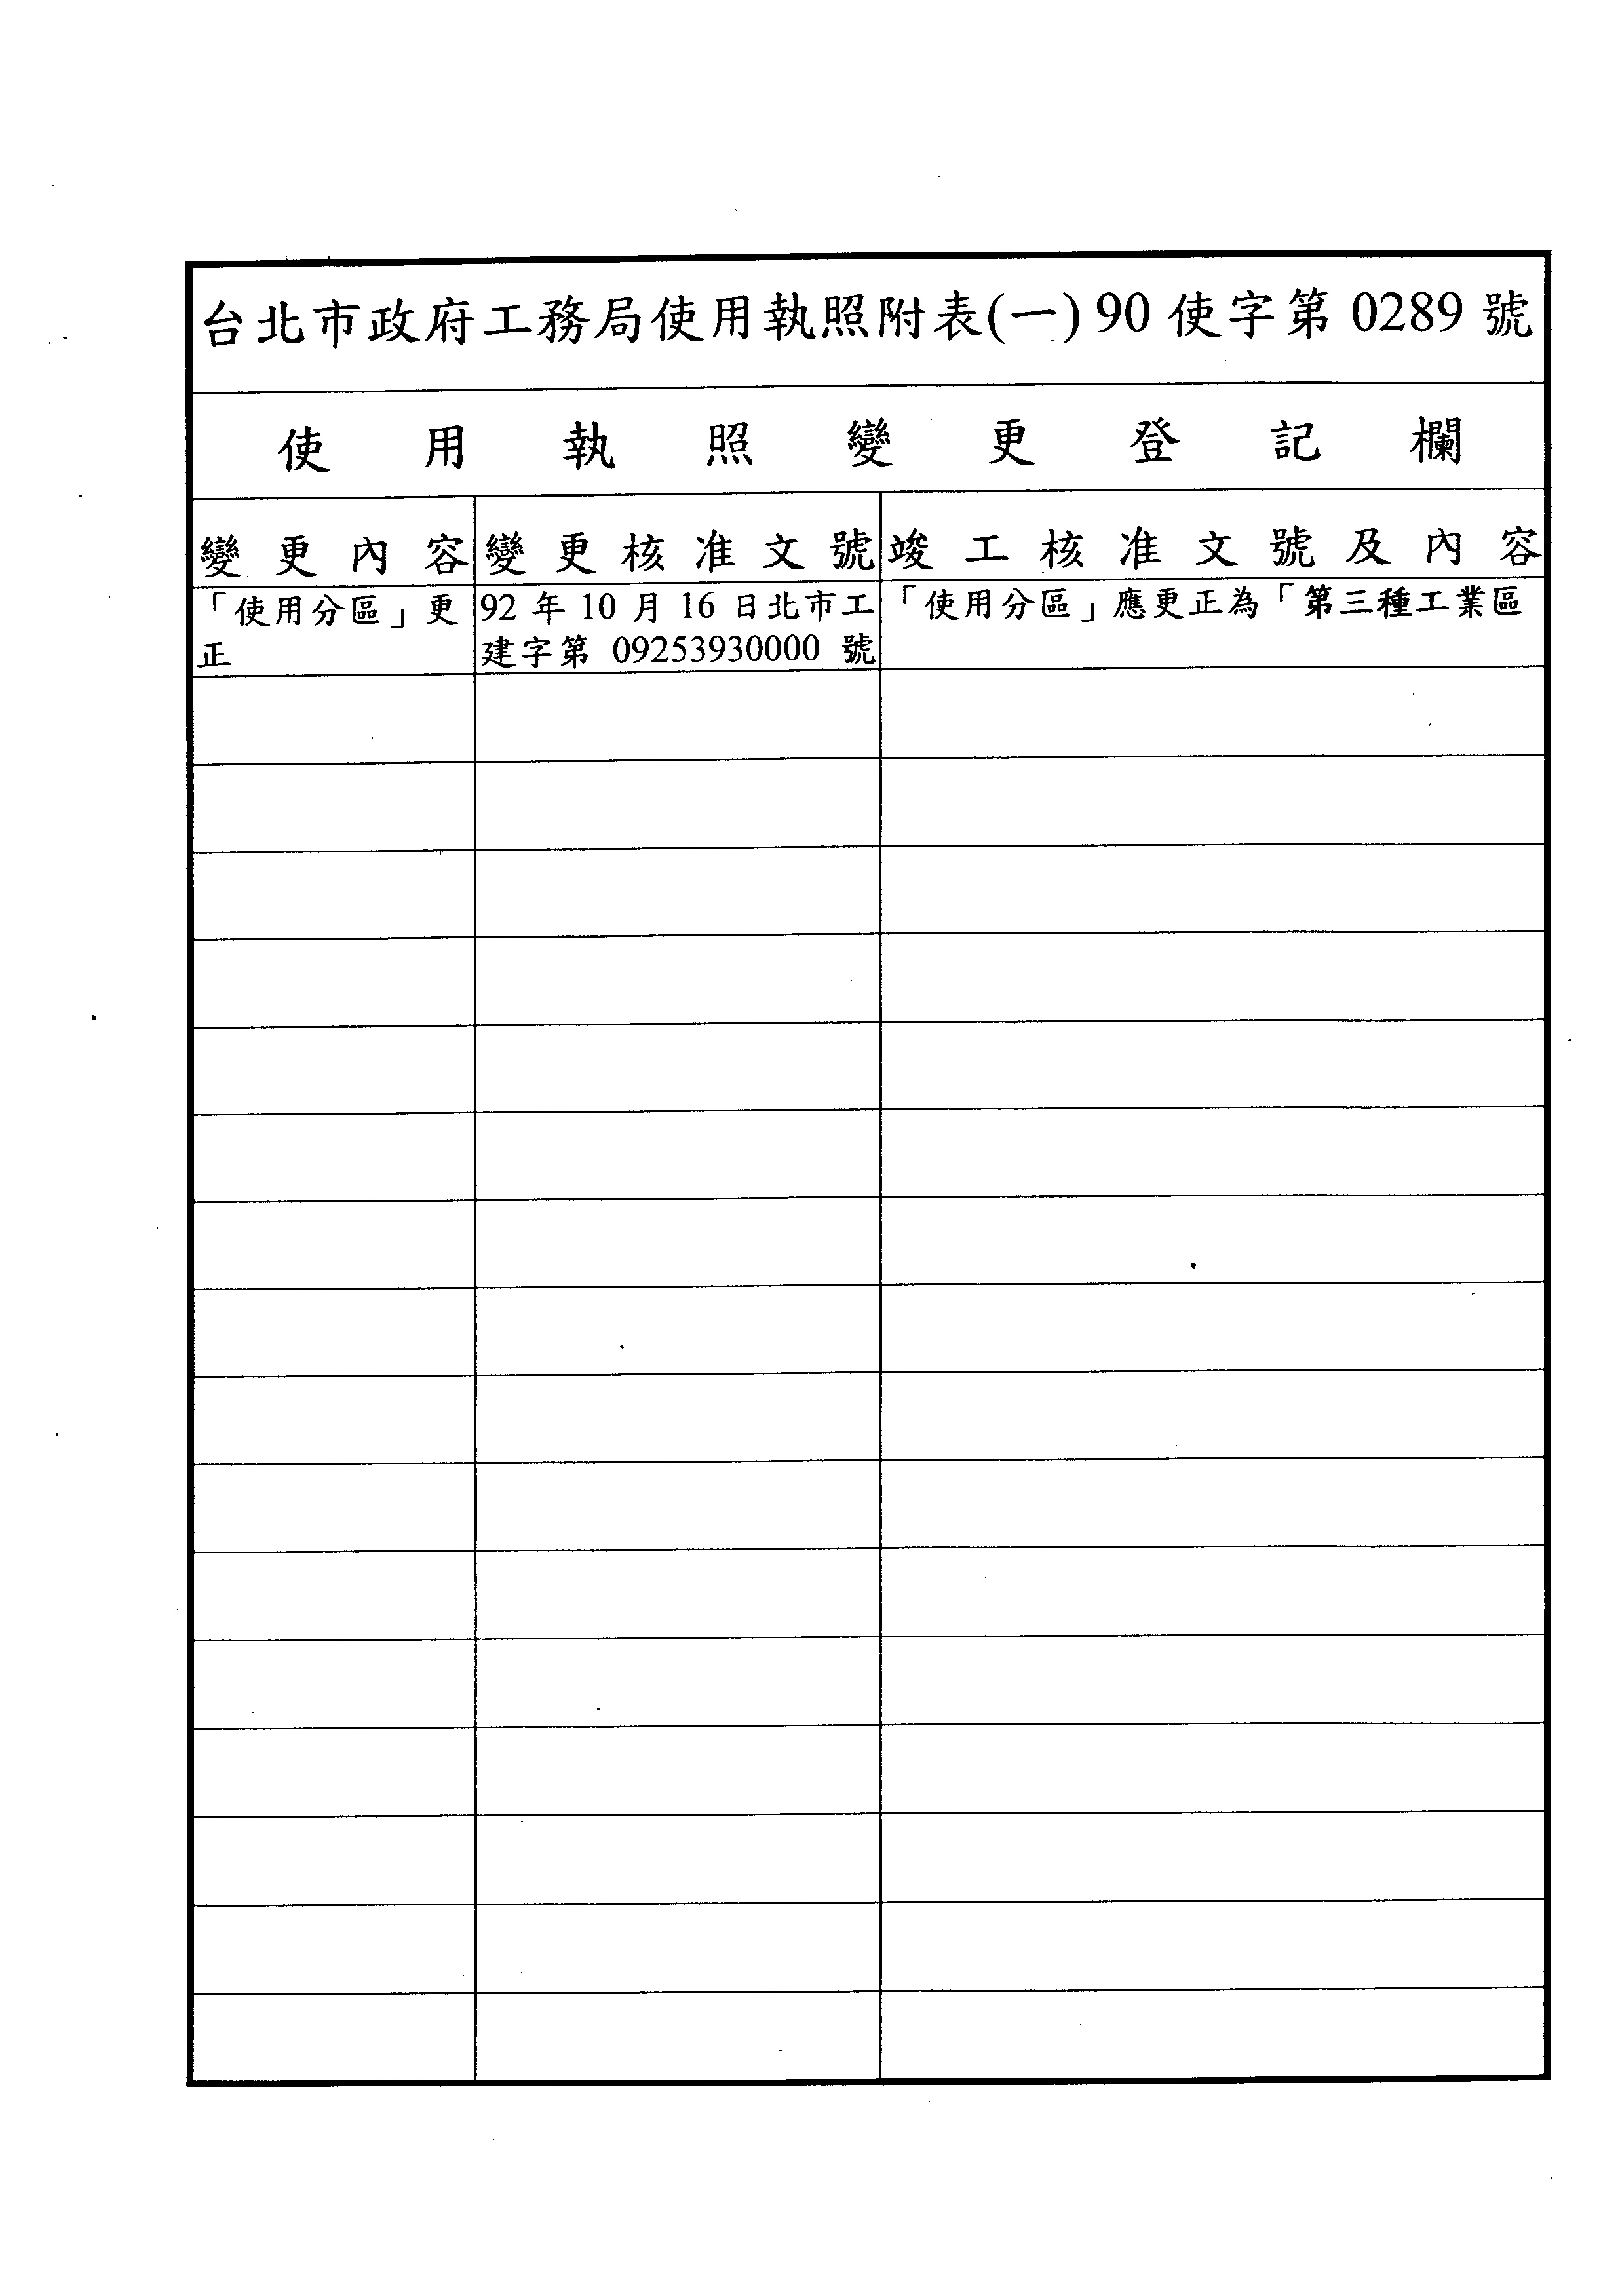 台北市政府工務局使用執照附表(一)90使字第0289號
使用執照變更登記欄
變更內容 變更核准文號 竣工核准文號及內容
「使用分區」更 92年10月16日北市工 「使用分區」應更正為「第三種工業區
正 建字第 09253930000 號